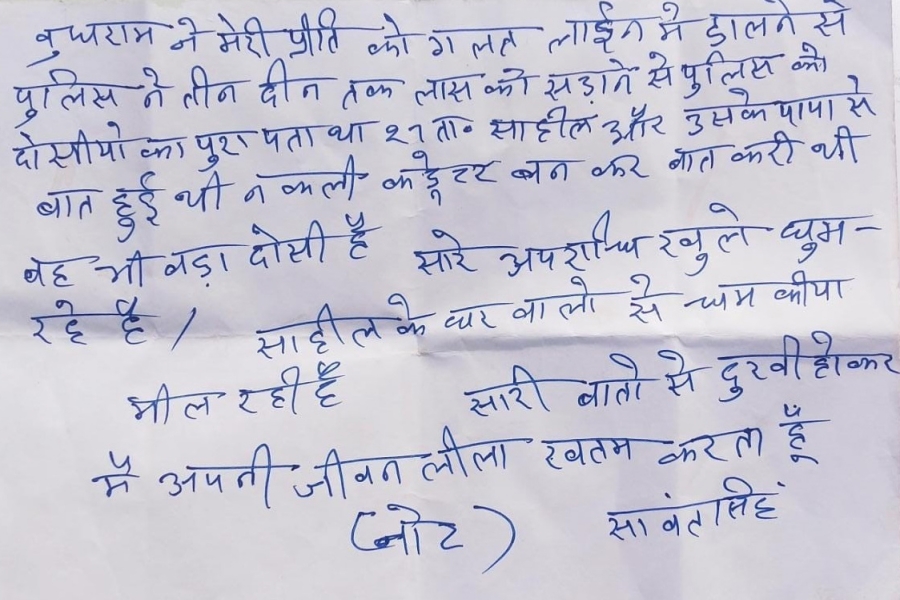 बुधराम ने मेरी प्रीति को गलत लाईन मे डालने से
पुलिस ने तीन दीन तक लास को सड़ाने से पुलिस को
दोसीयो का पुरा पता था २१ ता॰ साहील और उसके पापा से
बात हुई थी नकली कडेूटर बन कर बात करी थी
वह भी बड़ा दोसी है सारे अपराधि खुले घुम-
रहे है /
साहील के घर वालो से धमकीया
मील रही है
सारी बातो से दुखी होकर
मै अपनी जीवन लीला खतम करता हूँ
(नोट)
सावंतसिहं